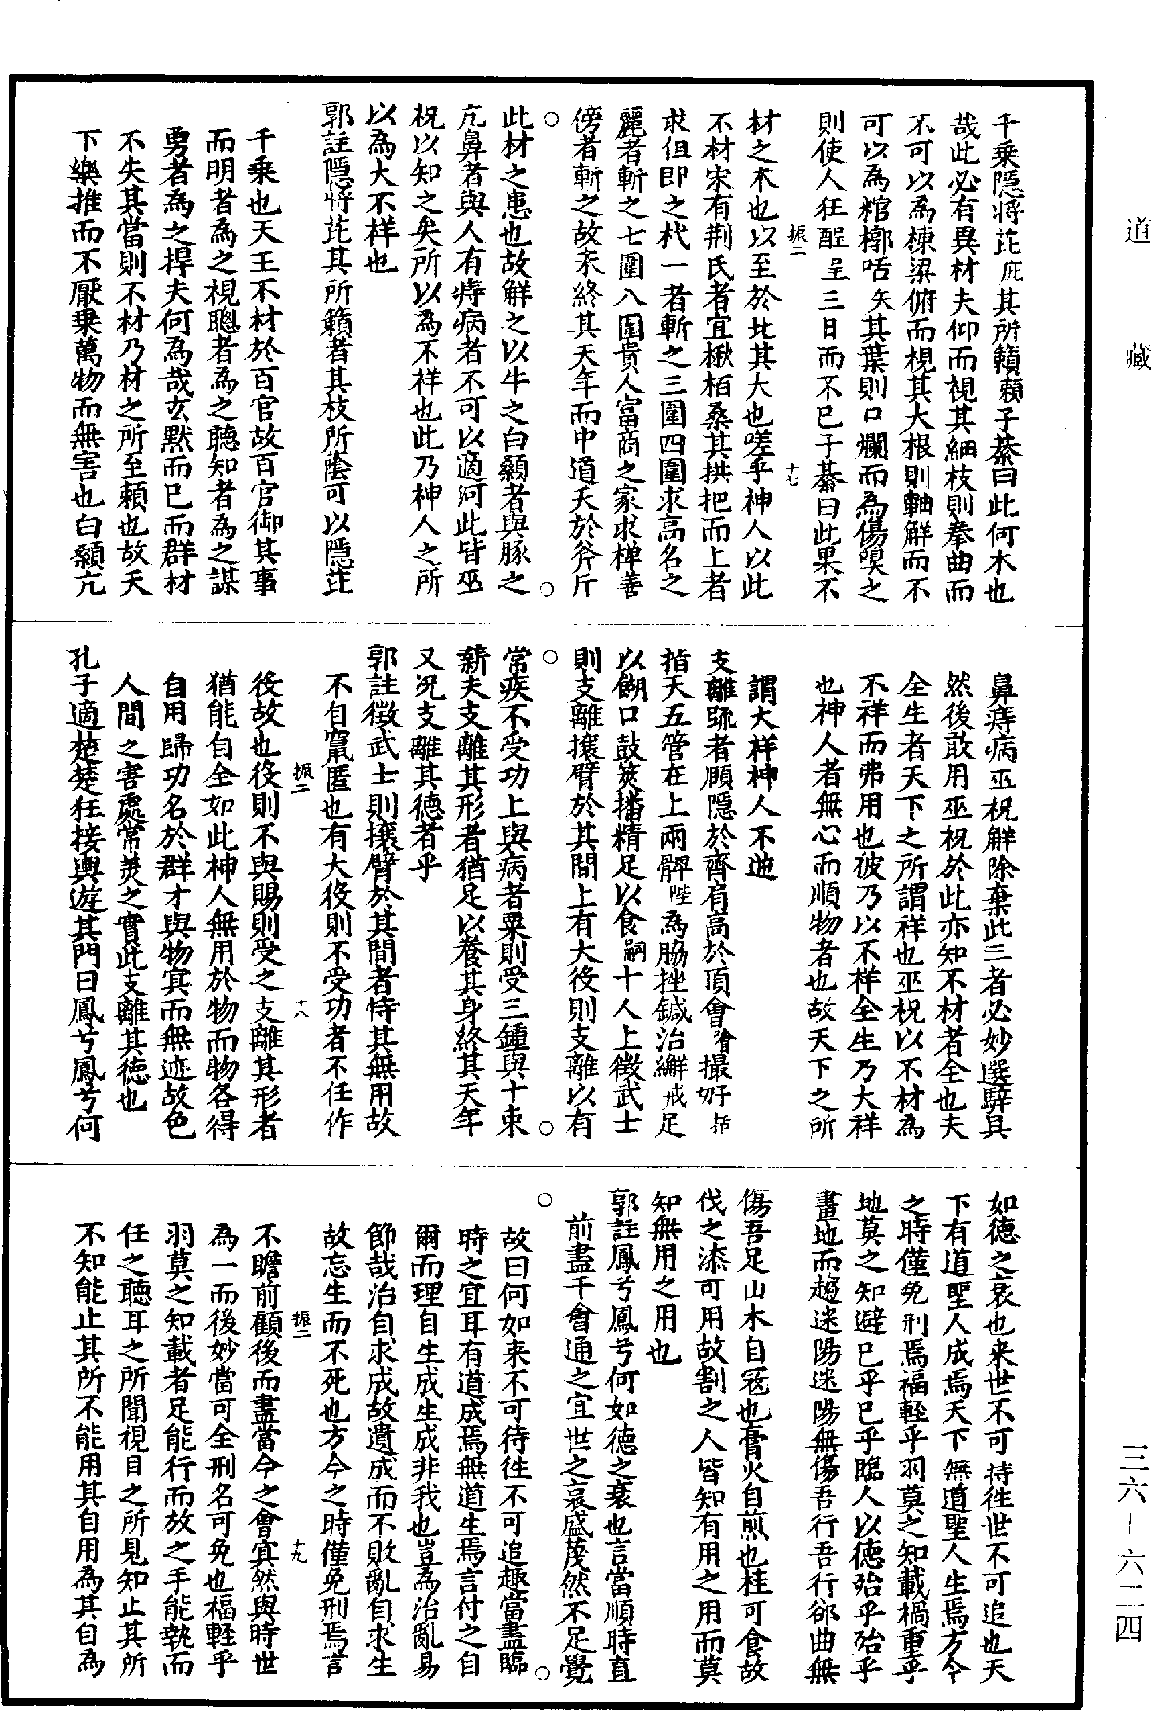 道藏
三六-六二四
千乘隱將芘庇其所藾賴子綦曰此何木也
哉此必有異材夫仰而視其細枝則拳曲而
不可以為棟梁俯而視其大根則軸解而不
可以為棺槨咶矢其葉則口爛而為傷嗅之
則使人狂酲呈三日而不已子綦曰此果不
振二 十七
材之木也以至於此其大也嗟乎神人以此
不材宋有荆氏者宜楸栢桑其拱把而上者
求但即之杙一者斬之三圍四圍求高名之
麗者斬之七圍八圍貴人富商之家求樿善
傍者斬之故未終其天年而中道夭於斧斤
此材之患也故解之以牛之白顙者與豚之
亢鼻者與人有痔病者不可以適河此皆巫
祝以知之矣所以為不祥也此乃神人之所
以為大不祥也
郭註隱將芘其所籟者其枝所蔭可以隱芘
千乘也天王不材於百官故百官御其事
而明者為之視聰者為之聽知者為之謀
勇者為之捍夫何為哉玄默而已而群材
不失其當則不材乃材之所至賴也故天
下樂推而不厭乗萬物而無害也白顙亢
鼻痔病巫祝解除棄此三者必妙選騂具
然後敢用巫祝於此亦知不材者全也夫
全生者天下之所謂祥也巫祝以不材為
不祥而弗用也彼乃以不祥全生乃大祥
也神人者無心而順物者也故天下之所
謂大祥神人不逆
支離疏者頤隱於齊肩高於頂會膾撮好括
指天五管在上兩髀陛為脇挫鍼治繲戒足
以餬口鼓筴播精足以食嗣十人上徵武士
則支離攘臂於其間上有大役則支離以有
常疾不受功上與病者粟則受三鍾與十束
薪夫支離其形者猶足以養其身終其天年
又况支離其德者乎
郭註徵武士則攘臂於其間者恃其無用故
不自竄匿也有大役則不受功者不任作
振二 十八
役故也役則不與賜則受之支離其形者
猶能自全如此神人無用於物而物各得
自用歸功名於群才與物冥而無迹故免
人間之害處常美之實此支離其德也
孔子適楚楚狂接輿遊其門曰鳳兮鳳兮何
如德之衰也来世不可待徃世不可追也天
下有道聖人成焉天下無道聖人生焉方今
之時僅免刑焉福輕乎羽莫之知載禍重乎
地莫之知避已乎已乎臨人以德殆乎殆乎
畫地而趨迷陽迷陽無傷吾行吾行郤曲無
傷吾足山木自寇也膏火自煎也桂可食故
伐之漆可用故割之人皆知有用之用而莫
知無用之用也
郭註鳳兮鳳兮何如德之衰也言當順時直
前盡千會通之宜世之衰盛蔑然不足覺
故曰何如来不可待徃不可追趣當盡臨
時之宜耳有道成焉無道生焉言付之自
爾而理自生成生成非我也豈為治亂易
節哉治自求成故遺成而不敗亂自求生
故忘生而不死也方今之時僅免刑焉言
振二 十九
不瞻前顧後而盡當今之會冥然與時世
為一而後妙當可全刑名可免也福輕乎
羽莫之知載者足能行而放之手能執而
任之聽耳之所聞視目之所見知止其所
不知能止其所不能用其自用為其自為